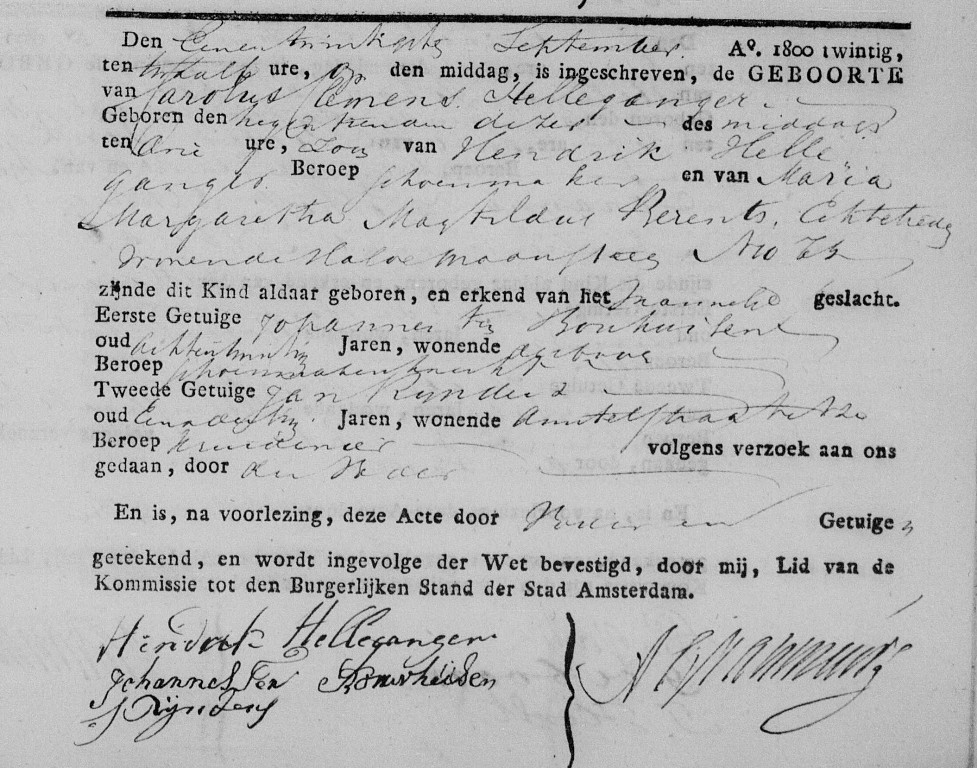 Den Eenentwintigste September Aº. 1800 twintig,
ten twaalf ure, op den middag, is ingeschreven, de GEBOORTE
van Carolus Clemens Helleganger
Geboren den negentienden dezer des middags
ten drie ure, Zoon van Hendrik Helle
ganger Beroep schoenmaker en van Maria
Margaretha Berents, Echtelieden
wonende Halvemaansteeg No
zijnde dit Kind aldaar geboren, en erkend van het Mannelijk geslacht.
Eerste Getuige Johannes ten
oud achtentwintig Jaren, wonende als boven
Beroep schoenmakersknecht
Tweede Getuige Jan Rijnders
oud Jaren, wonende Amstelstraat
Beroep kruidenier volgens verzoek aan ons
gedaan, door den Vader
En is, na voorlezing, deze Acte door Vader en Getuigen
geteekend, en wordt ingevolge der Wet bevestigd, door mij, Lid van de
Kommissie tot den Burgerlijken Stand der Stad Amsterdam.
Hendrik Helleganger
Johannes Ten
J Rijnders